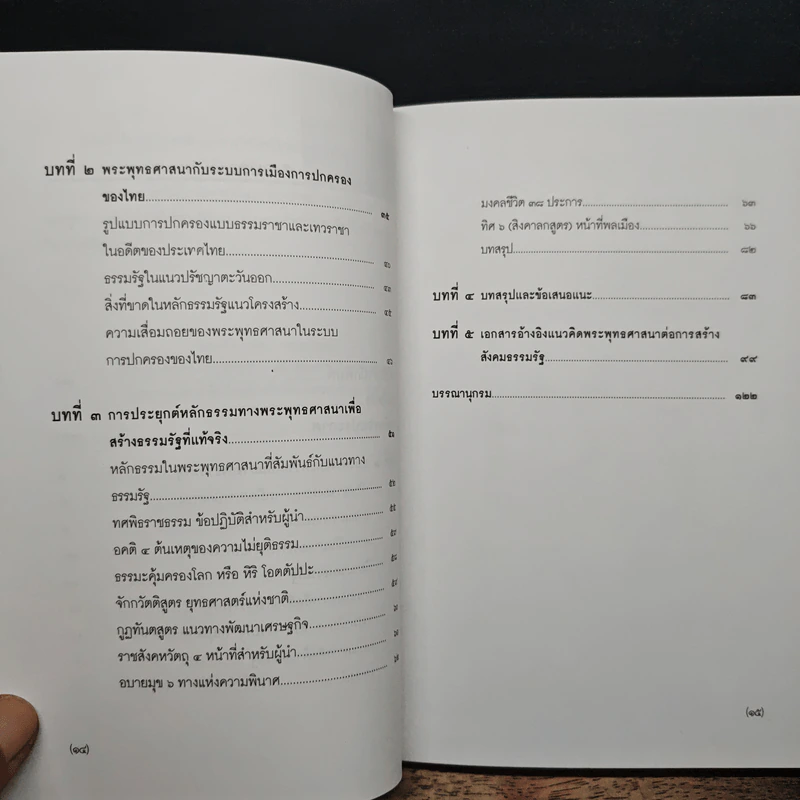 บทที่ ๒ พระพุทธศาสนากับระบบการเมืองการปกครอง
ของไทย
รูปแบบการปกครองแบบธรรมราชาและเทวราชา
ในอดีตของประเทศไทย
ธรรมรัฐในแนวปรัชญาตะวันออก
สิ่งที่ขาดในหลักธรรมรัฐแนวโครงสร้าง
ความเสื่อมถอยของพระพุทธศาสนาในระบบ
การปกครองของไทย
บทที่ ๓ การประยุกต์หลักธรรมทางพระพุทธศาสนาเพื่อ
สร้างธรรมรัฐที่แท้จริง
หลักธรรมในพระพุทธศาสนาที่สัมพันธ์กับแนวทาง
ธรรมรัฐ
ทศพิธราชธรรม ข้อปฏิบัติสำหรับผู้นำ
อคติ ๔ ต้นเหตุของความไม่ยุติธรรม
ธรรมะคุ้มครองโลก หรือ หิริ โอตตัปปะ
จักกวัตติสูตร ยุทธศาสตร์แห่งชาติ
กูฏทันตสูตร แนวทางพัฒนาเศรษฐกิจ
ราชสังคหวัตถุ ๔ หน้าที่สำหรับผู้นำ
อบายมุข ๖ ทางแห่งความพินาศ
(๑๔)
มงคลชีวิต ๓๘ ประการ ๖๓
ทิศ ๖ (สิงคาลกสูตร) หน้าที่พลเมือง ๖๖
บทสรุป ๘๒
บทที่ ๔ บทสรุปและข้อเสนอแนะ ๘๓
บทที่ ๕ เอกสารอ้างอิงแนวคิดพระพุทธศาสนาต่อการสร้าง
สังคมธรรมรัฐ ๙๙
บรรณานุกรม ๑๒๒
(๑๕)